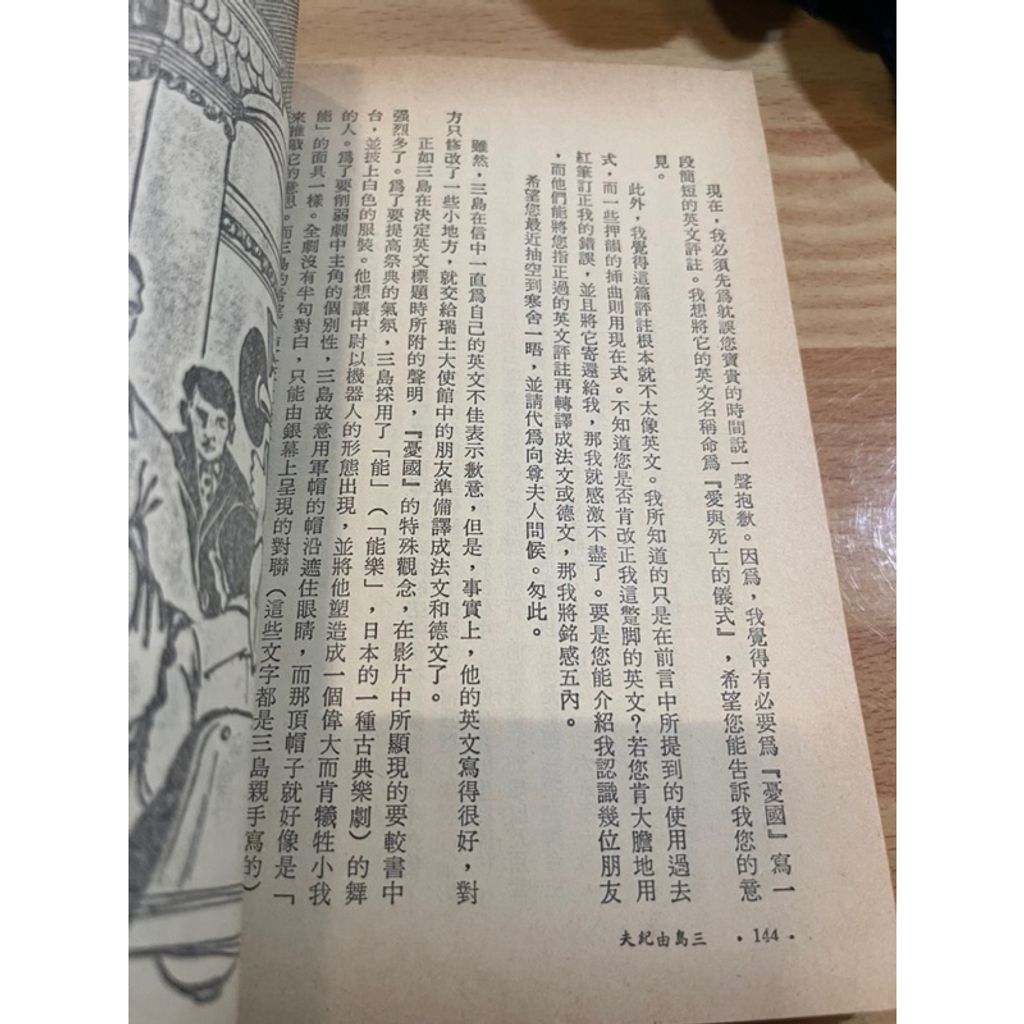 現在，我必須先爲躭誤您寶貴的時間說一聲抱歉。因爲，我覺得有必要爲『憂國』寫一
段簡短的英文評註。我想將它的英文名稱命爲『愛與死亡的儀式』，希望您能告訴我您的意
見。
此外，我覺得這篇評註根本就不太像英文。我所知道的只是在前言中所提到的使用過去
式，而一些押韻的揷曲則用現在式。不知道您是否肯改正我這蹩脚的英文？若您肯大膽地用
紅筆訂正我的錯誤，並且將它寄還給我，那我就感激不盡了。要是您能介紹我認識幾位朋友
，而他們能將您指正過的英文評註再轉譯成法文或德文，那我將銘感五內。
希望您最近抽空到寒舍一晤，並請代爲向尊夫人問候。匆此。
雖然，三島在信中一直爲自己的英文不佳表示歉意，但是，事實上，他的英文寫得很好，對
方只修改了一些小地方，就交給瑞士大使館中的朋友準備譯成法文和德文了。
正如三島在決定英文標題時所附的聲明，『憂國』的特殊觀念，在影片中所顯現的要較書中
强烈多了。爲了要提高祭典的氣氛，三島採用了「能」（「能樂」，日本的一種古典樂劇）的舞
台，並披上白色的服裝。他想讓中尉以機器人的形態出現，並將他塑造成一個偉大而肯犧牲小我
的人。爲了要削弱劇中主角的個別性，三島故意用軍帽的帽沿遮住眼睛，而那頂帽子就好像是「
能」的面具一樣。全劇沒有半句對白，只能由銀幕上呈現的對聯（這些文字都是三島親手寫的）
來推敲它的意思。而三島的
三島由紀夫 ・144・